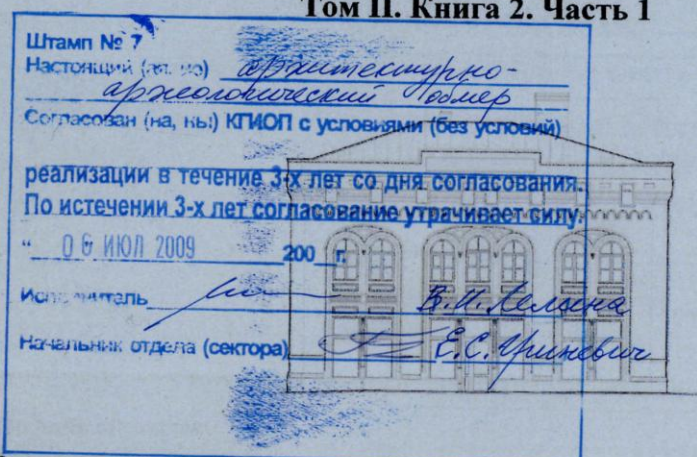 Том II. Книга 2. Часть 1
Штамп № 7
Настоящий (ая, ие) архитектурно-
археологический обмер
Согласован (на, ны) КГИОП с условиями (без условий)
реализации в течение 3-х лет со дня согласования.
По истечении 3-х лет согласование утрачивает силу.
" 06 ИЮЛ 2009 200 г.
Исполнитель В.И.
Начальник отдела (сектора) Е.С. Гриневич